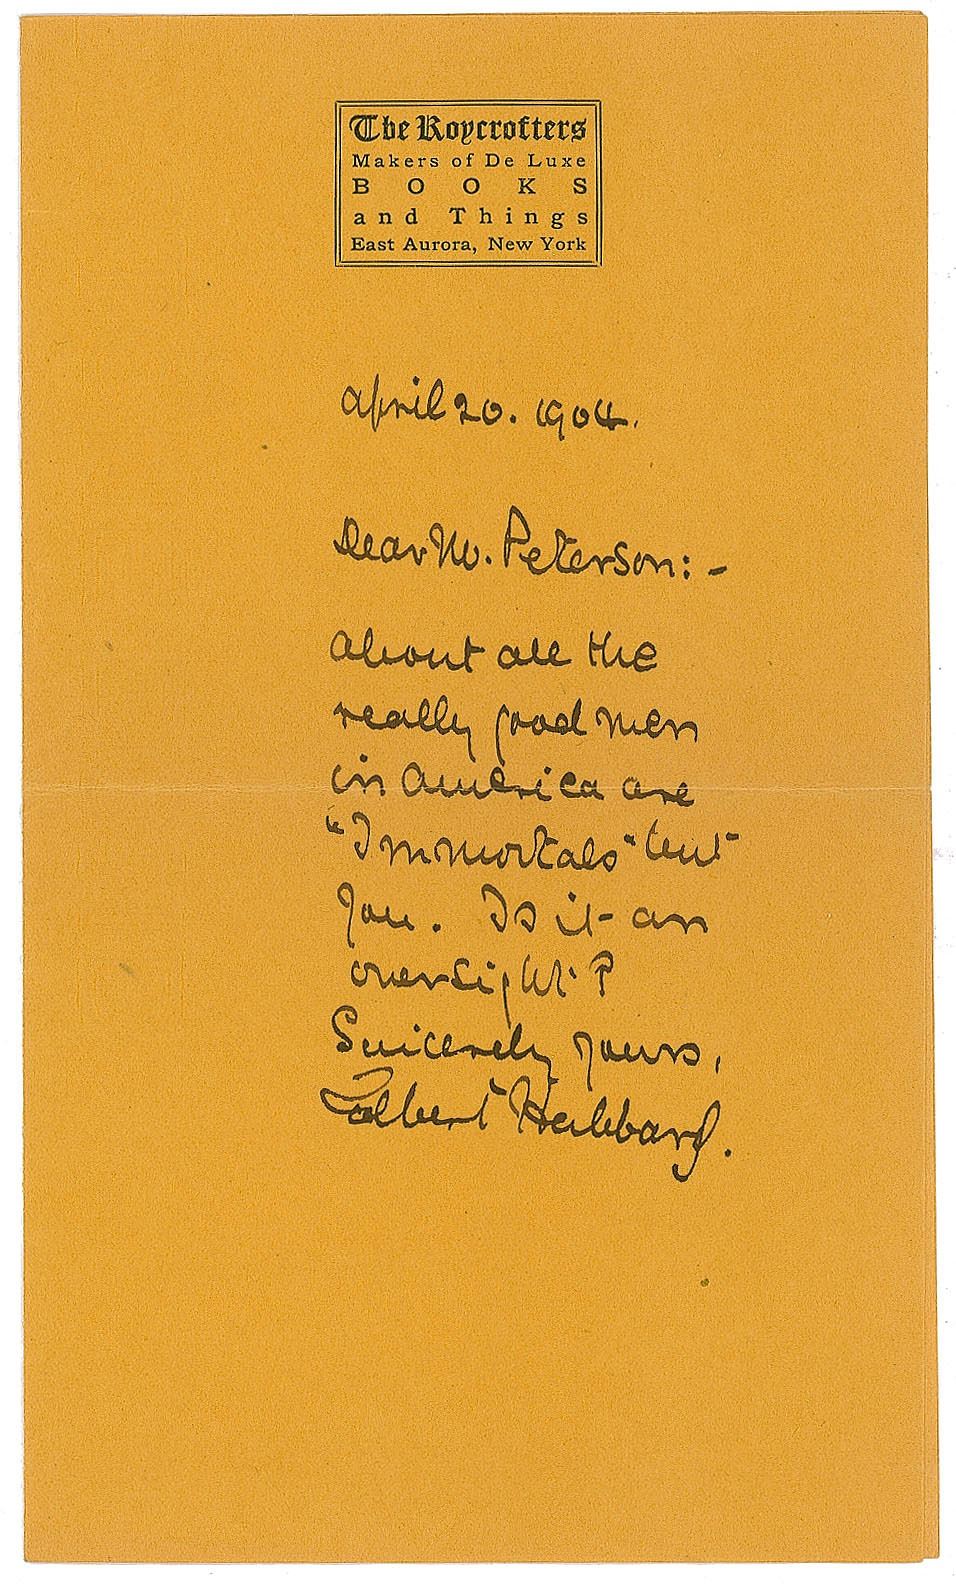 The Roycrofters
Makers of De Luxe
BOOKS
and Things
East Aurora, New York
April 20. 1904.
Dear Mr. Peterson:-
About all the
really good men
in America are
"Immortals" but
you. Is it an
oversight?
Sincerely yours,
Elbert Hubbard.